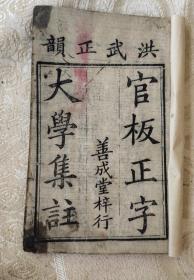 洪武正韻
官板正字
善成堂梓行
大學集註